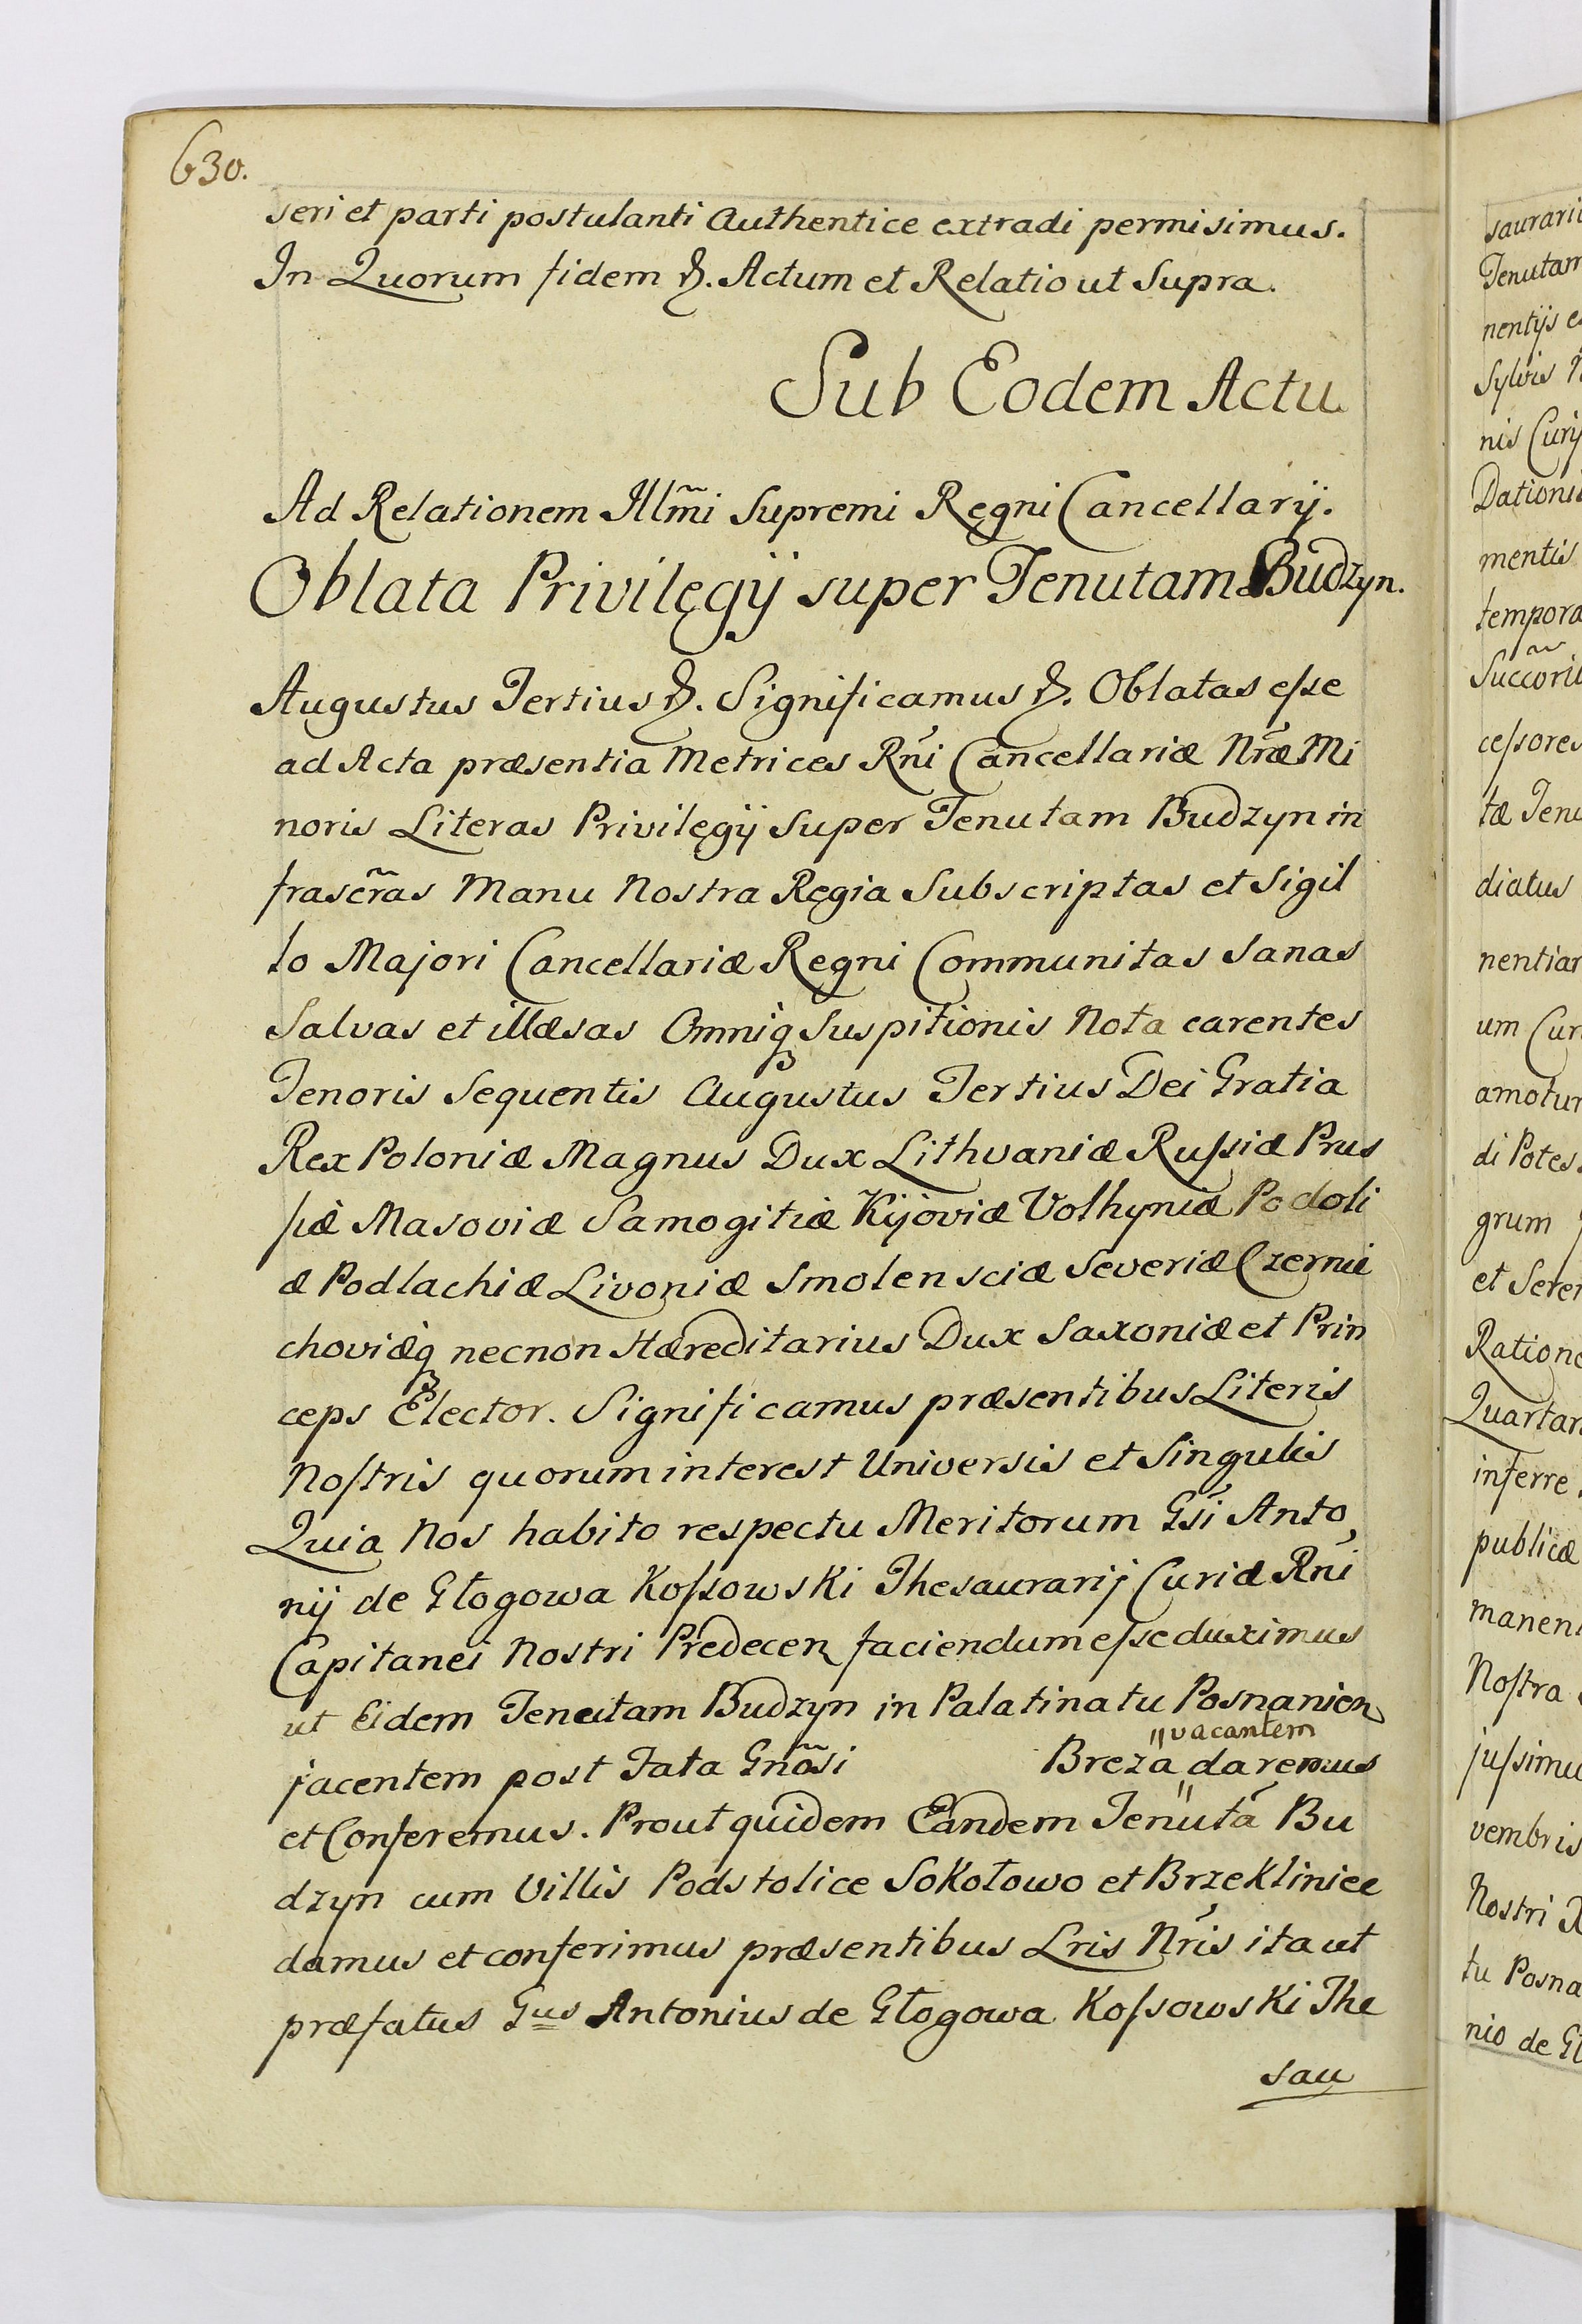 630.
seri et parti postulanti Authentice extradi permisimus.
In Quorum fidem &. Actum et Relatio ut Supra.
Sub Eodem Actu
Ad Relationem Illm̃i Supremi Regni Cancellarij.
Oblata Privilęgij super Tenutam Budzyn.
Augustus Tertius &. Significamus &. Oblatas eſse
ad Acta præsentia Metrices Rńi Cancellariæ Nŕæ Mi
noris Literas Privilęgij Super Tenutam Budzyn in
frascr̃as Manu Nostra Ręgia Subscriptas et Sigil
lo Majori Cancellariæ Regni Communitas Sanas
Salvas et illæsas Omniq́ Suspitionis Nota carentes
Tenoris Sequentis Augustus Tertius Dei Gratia
Rex Poloniæ Magnus Dux Lithvaniæ Ruſsiæ Prus
ſiæ Masoviæ Samogitiæ Kijoviæ Volhyniæ Podoli
æ Podlachiæ Livoniæ Smolensciæ Severiæ Czernie
choviæq́ necnon Hæreditarius Dux Saxoniæ et Prin
ceps Elector. Significamus præsentibus Literis
Noſtris quorum interest Universis et Singulis
Quia Nos habito respectu Meritorum Gśi Anto
nij de Głogowa Koſsowski Thesaurarij Curiæ Rńi
Capitanei Nostri Predecen faciendum eſse duximus
ut Eidem Tenutam Budzyn in Palatinatu Posnanien
jacentem post Fata Gnõsi Breza "vacantem daremus
et Conferemus. Prout quidem Eandem Tenutá Bu
dzyn cum Villis Podstolice Sokołowo et Brzekliniec
damus et conferimus præsentibus Lris Nŕis ita ut
præfatus Gus Antonius de Głogowa Koſsowski The
sau
saurarii
Tenutam
nentijs
Sylvis
nis Curij
mentis
ceſsores
tæ Tenu
diatus
nentiar
um Cur
amotum
di Potes
grum
et Seren
Ratione
Quartam
inferre
publicæ
manen
Noſtra
juſsimus
vembris
Nostri R
tu Posna
nio de Gł